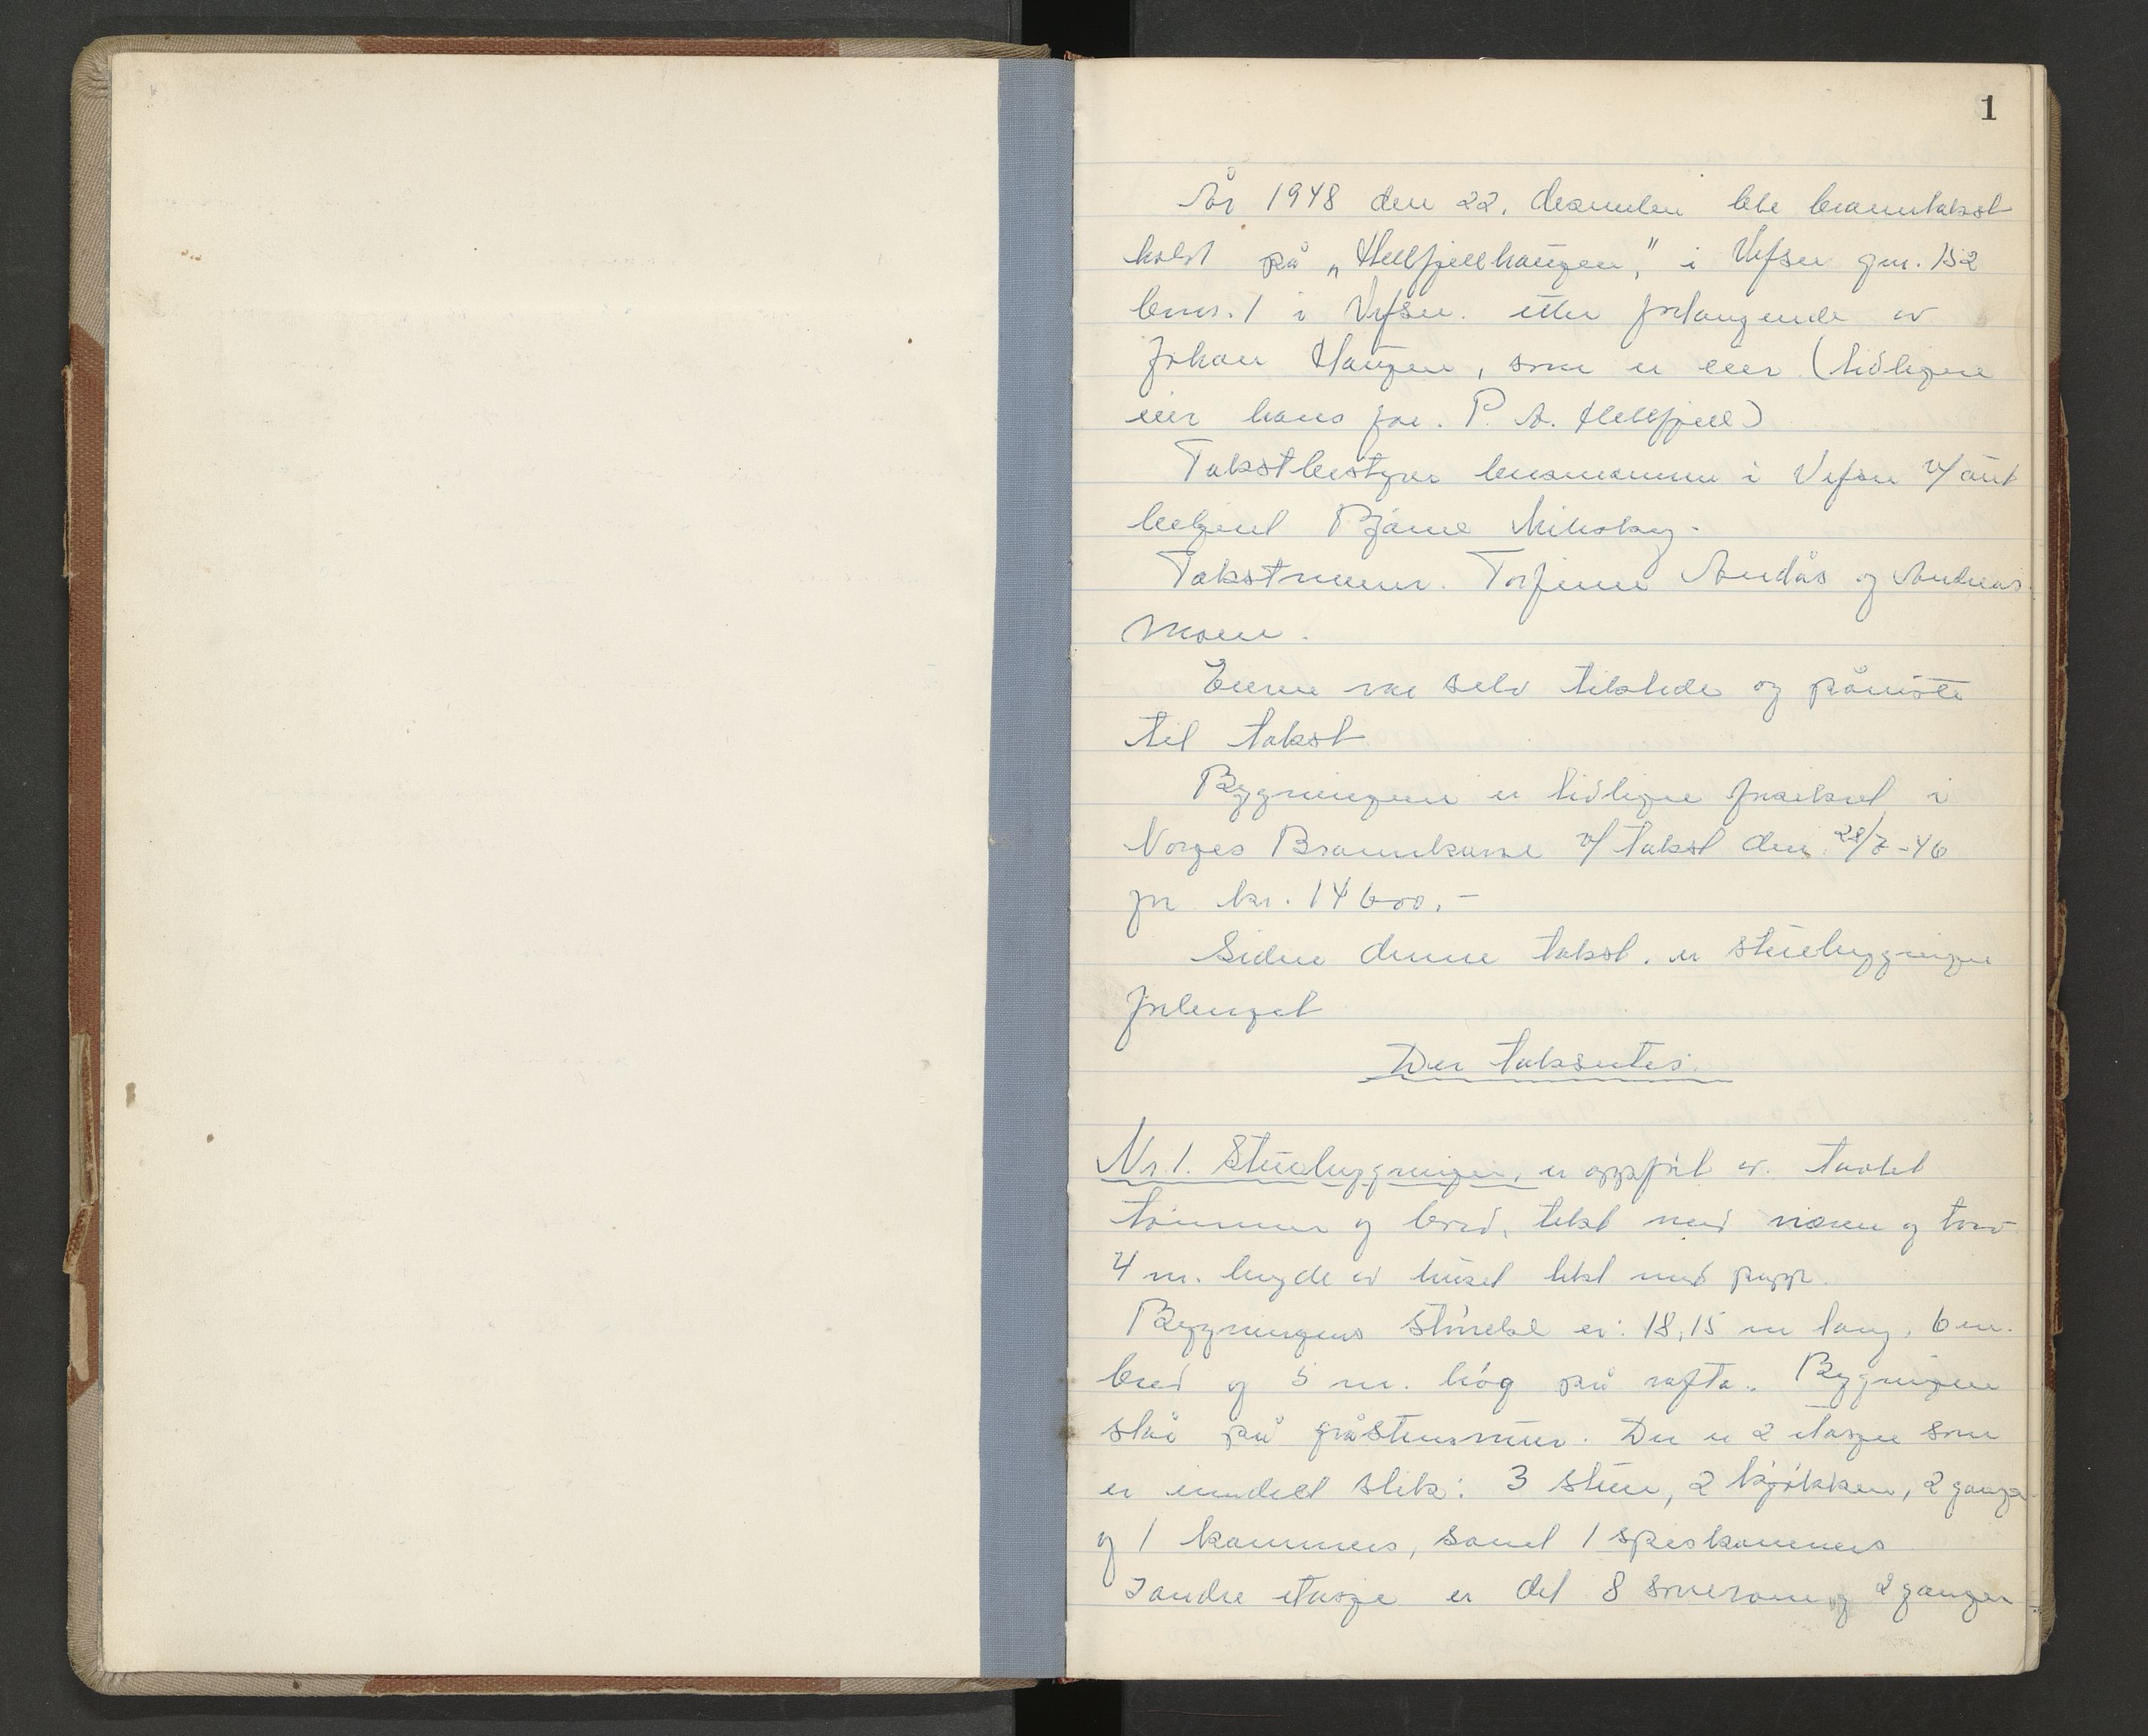 1
År 1948 den 22. desember ble branntakst
holdt på „Hellfjellhaugen," i Vefsn gnr. 152
bnr. 1 i Vefsn. etter forlangende av
Johan Haugen, som er eier (tidligere
eier hans far. P. A. Hellfjell)
Takstbestyrer lensmannen i Vefsn v/ aut
betjent Bjarne
Takstmenn. Torfinn Andås og Andreas
Moen.
Eieren var selv tilstede og påviste
til takst
Bygningene er tidligere forsikret i
Norges Brannkasse v/ takst den 28/7-46
for kr. 14600.-
Siden denne takst. er stuebygningen
forlenget
Der taksertes:
Nr. 1. Stuebygningen, er oppført av
tømmer og bord, tekt med næver og torv
4 m. lengde av huset tekt med papp.
Bygningens størrelse er: 18,15 m lang, 6 m.
bred og 5 m. høg på rafta. Bygningen
står på gråstensmur. Der er 2 etasjer som
er inndelt slik: 3 stuer, 2 kjøkken, 2 ganger
og 1 kammers, samt 1 speskammers
I andre etasje er det 8 soverom og 2 ganger